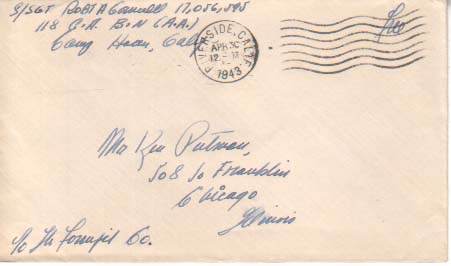 S/SGT Robt A Connell 17,056,595
118 C.A. B.N (A.A.)
Camp Haan, Calif
RIVERSIDE, CALIF.
APR 30
12 M
1943
Free
Mr Ken Putman,
508 So Franklin
Chicago
Illinois
c/o The Co.